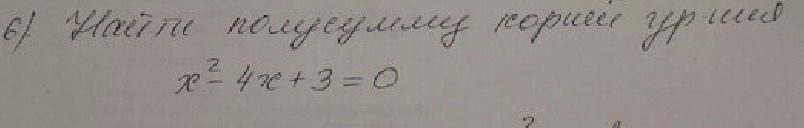 6). Найти полусумму корней ур-ния
x² - 4x + 3 = 0